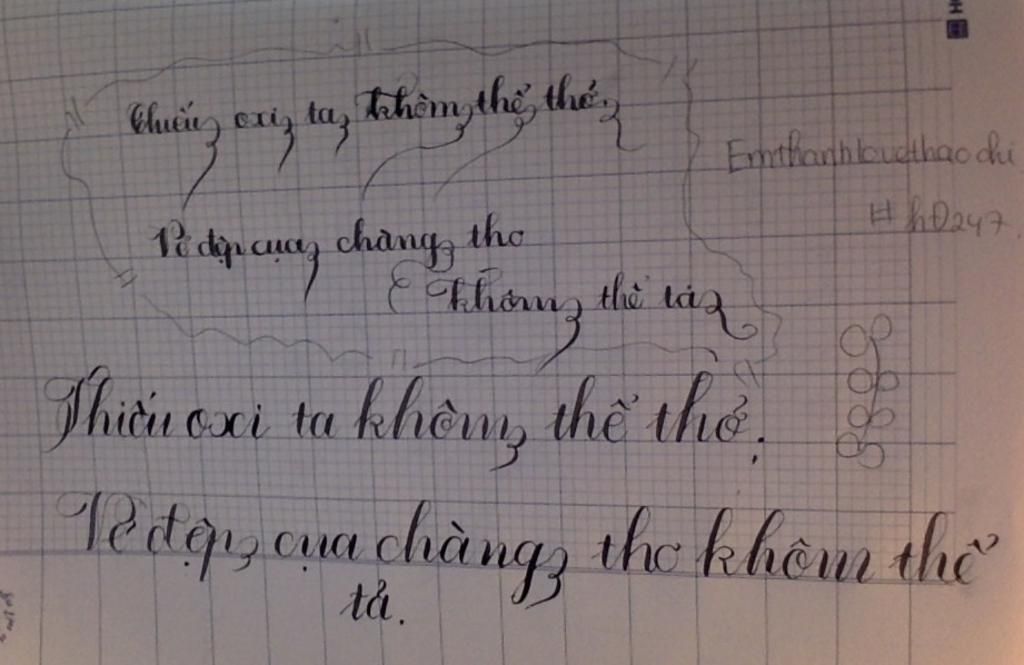 Thiếu oxi ta không thể thở,
Vẻ đẹp của chàng thơ
không thể tả
Emthanhlaucthaochi
#hĐ247
Thiếu oxi ta không thể thở,
Vẻ đẹp của chàng thơ khôm thể
tả.